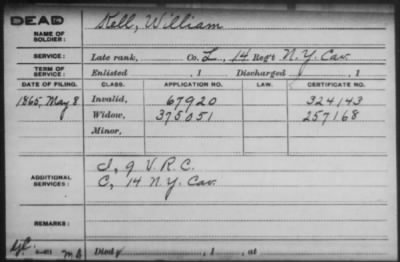 DEAD
NAME OF SOLDIER: Kell, William
SERVICE: Late rank, Co. L, 14 Reg't N.Y. Cav.
TERM OF SERVICE: Enlisted , 1 Discharged , 1
DATE OF FILING. CLASS. APPLICATION NO. LAW. CERTIFICATE NO.
1865, May 8 Invalid, 67920 324143
Widow, 375051 257168
Minor,
ADDITIONAL SERVICES: I, 9 V.R.C.
C, 14 N.Y. Cav.
REMARKS:
Died , 1 , at